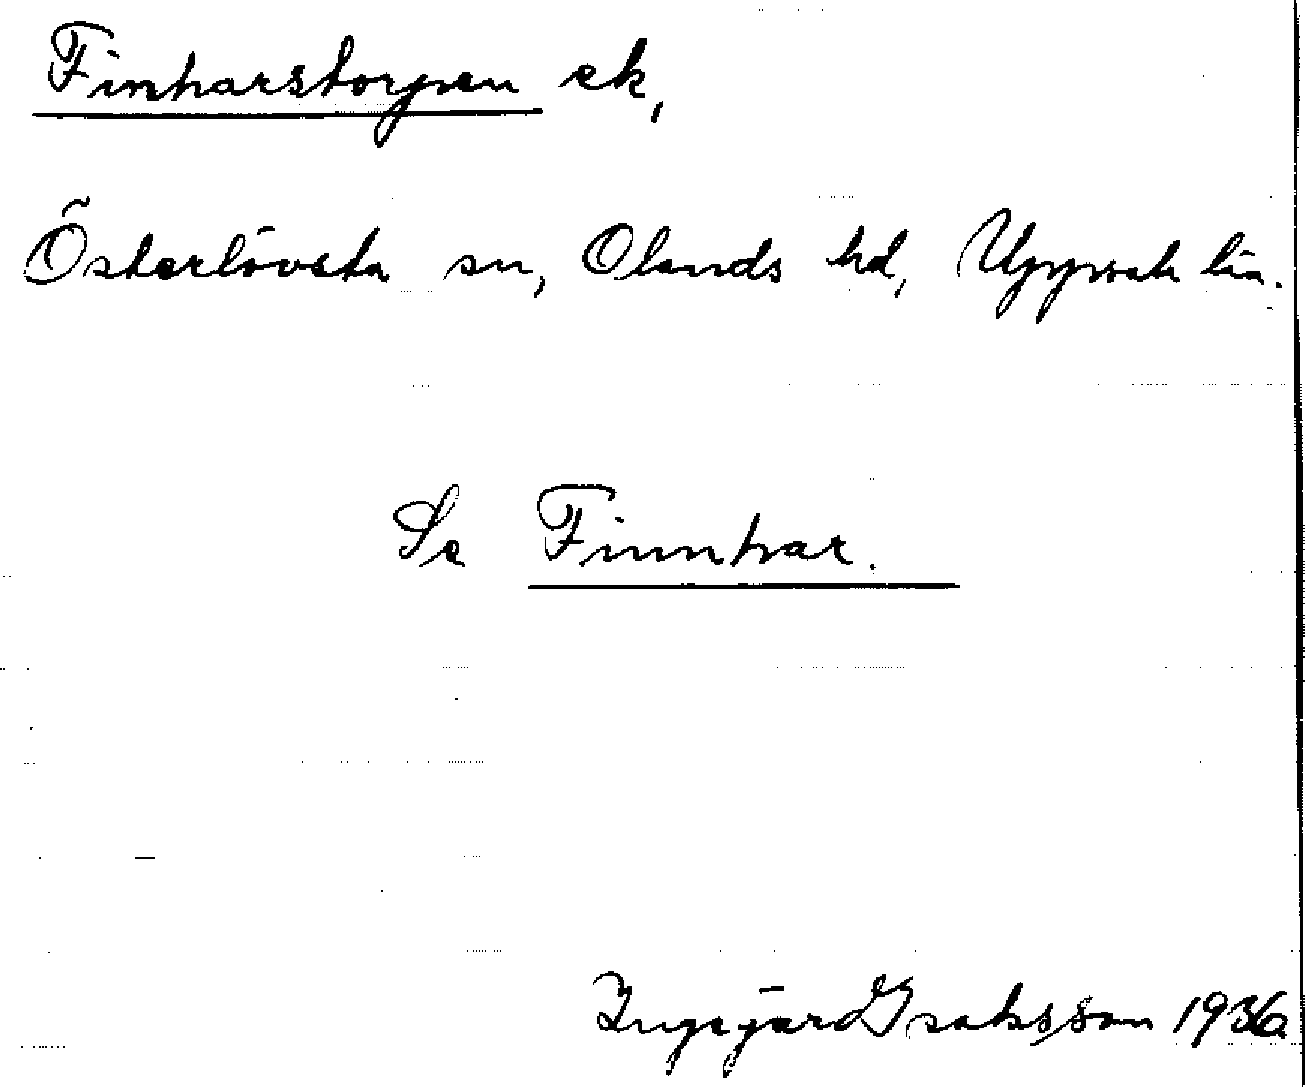 Finharstorpen ek,
Österlövsta sn, Olands hd, Uppsala län.
Se Finnhar.
Ingegärd Isaksson 1936